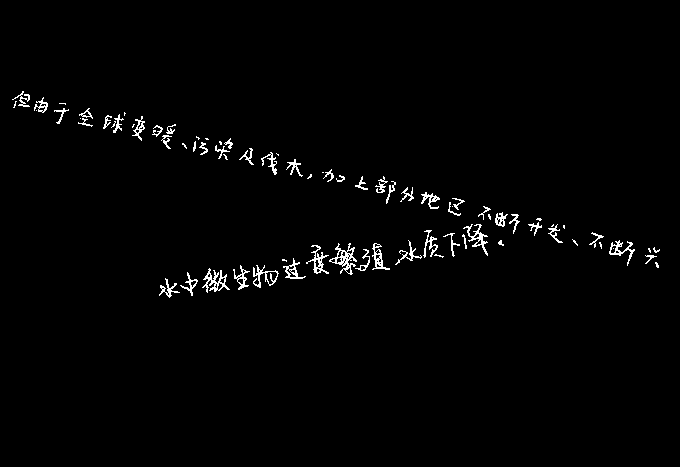 但由于全球变暖、污染及伐木,加上部分地区不断开发、不断兴
水中微生物过度繁殖,水质下降。